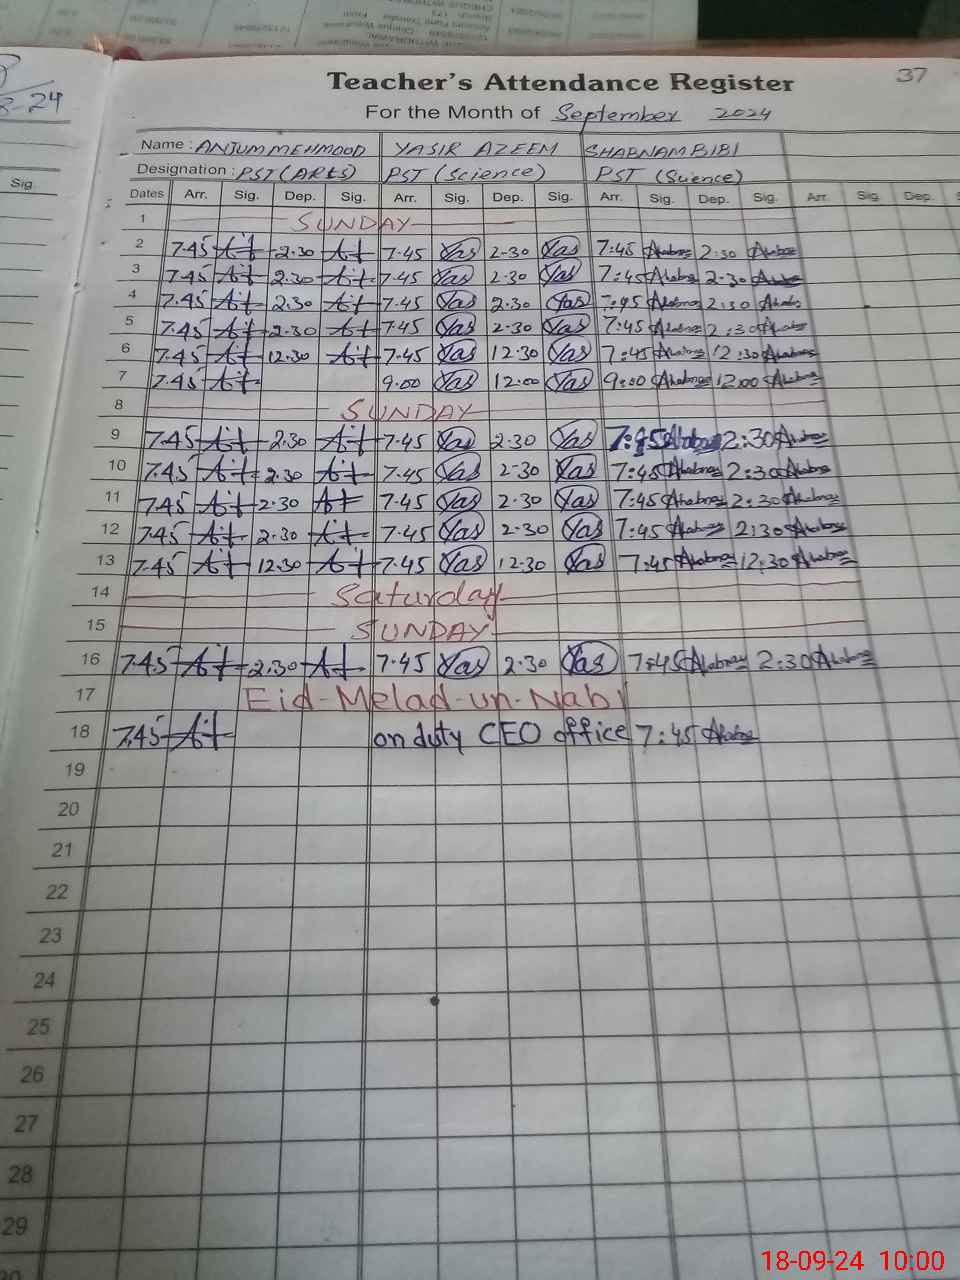 37
Teacher's Attendance Register
For the Month of September 2024
Name : ANJUM MEHMOOD YASIR AZEEM SHABNAM BIBI
Designation : PST (ARTS) PST (Science) PST (Science)
Dates Arr. Sig. Dep. Sig. Arr. Sig. Dep. Sig. Arr. Sig. Dep. Sig. Arr. Sig. Dep.
1 SUNDAY
2 7.45 2.30 7.45 Yas 2-30 Yas 7:45 2:30
3 7.45 2.30 7.45 Yas 2.30 Yas 7:45 2-30
4 7.45 2.30 7.45 Yas 2.30 Yas 7:45 2:30
5 7.45 2.30 7.45 Yas 2.30 Yas 7:45 2:30
6 7.45 12.30 7.45 Yas 12.30 Yas 7:45 12:30
7 7.45 9.00 Yas 12.00 Yas 9:00 12:00
8 SUNDAY
9 7.45 2.30 7.45 Yas 2.30 Yas 7:45 2:30
10 7.45 2.30 7.45 Yas 2-30 Yas 7:45 2:30
11 7.45 2.30 7.45 Yas 2.30 Yas 7:45 2:30
12 7.45 2.30 7.45 Yas 2.30 Yas 7:45 2:30
13 7.45 12.30 7.45 Yas 12.30 Yas 7:45 12:30
14 Saturday
15 SUNDAY
16 7.45 2.30 7.45 Yas 2.30 Yas 7:45 2:30
17 Eid-Melad-un-Nabi
18 7.45 on duty CEO office 7:45
19
20
21
22
23
24
25
26
27
28
29
Sig.
18-09-24 10:00